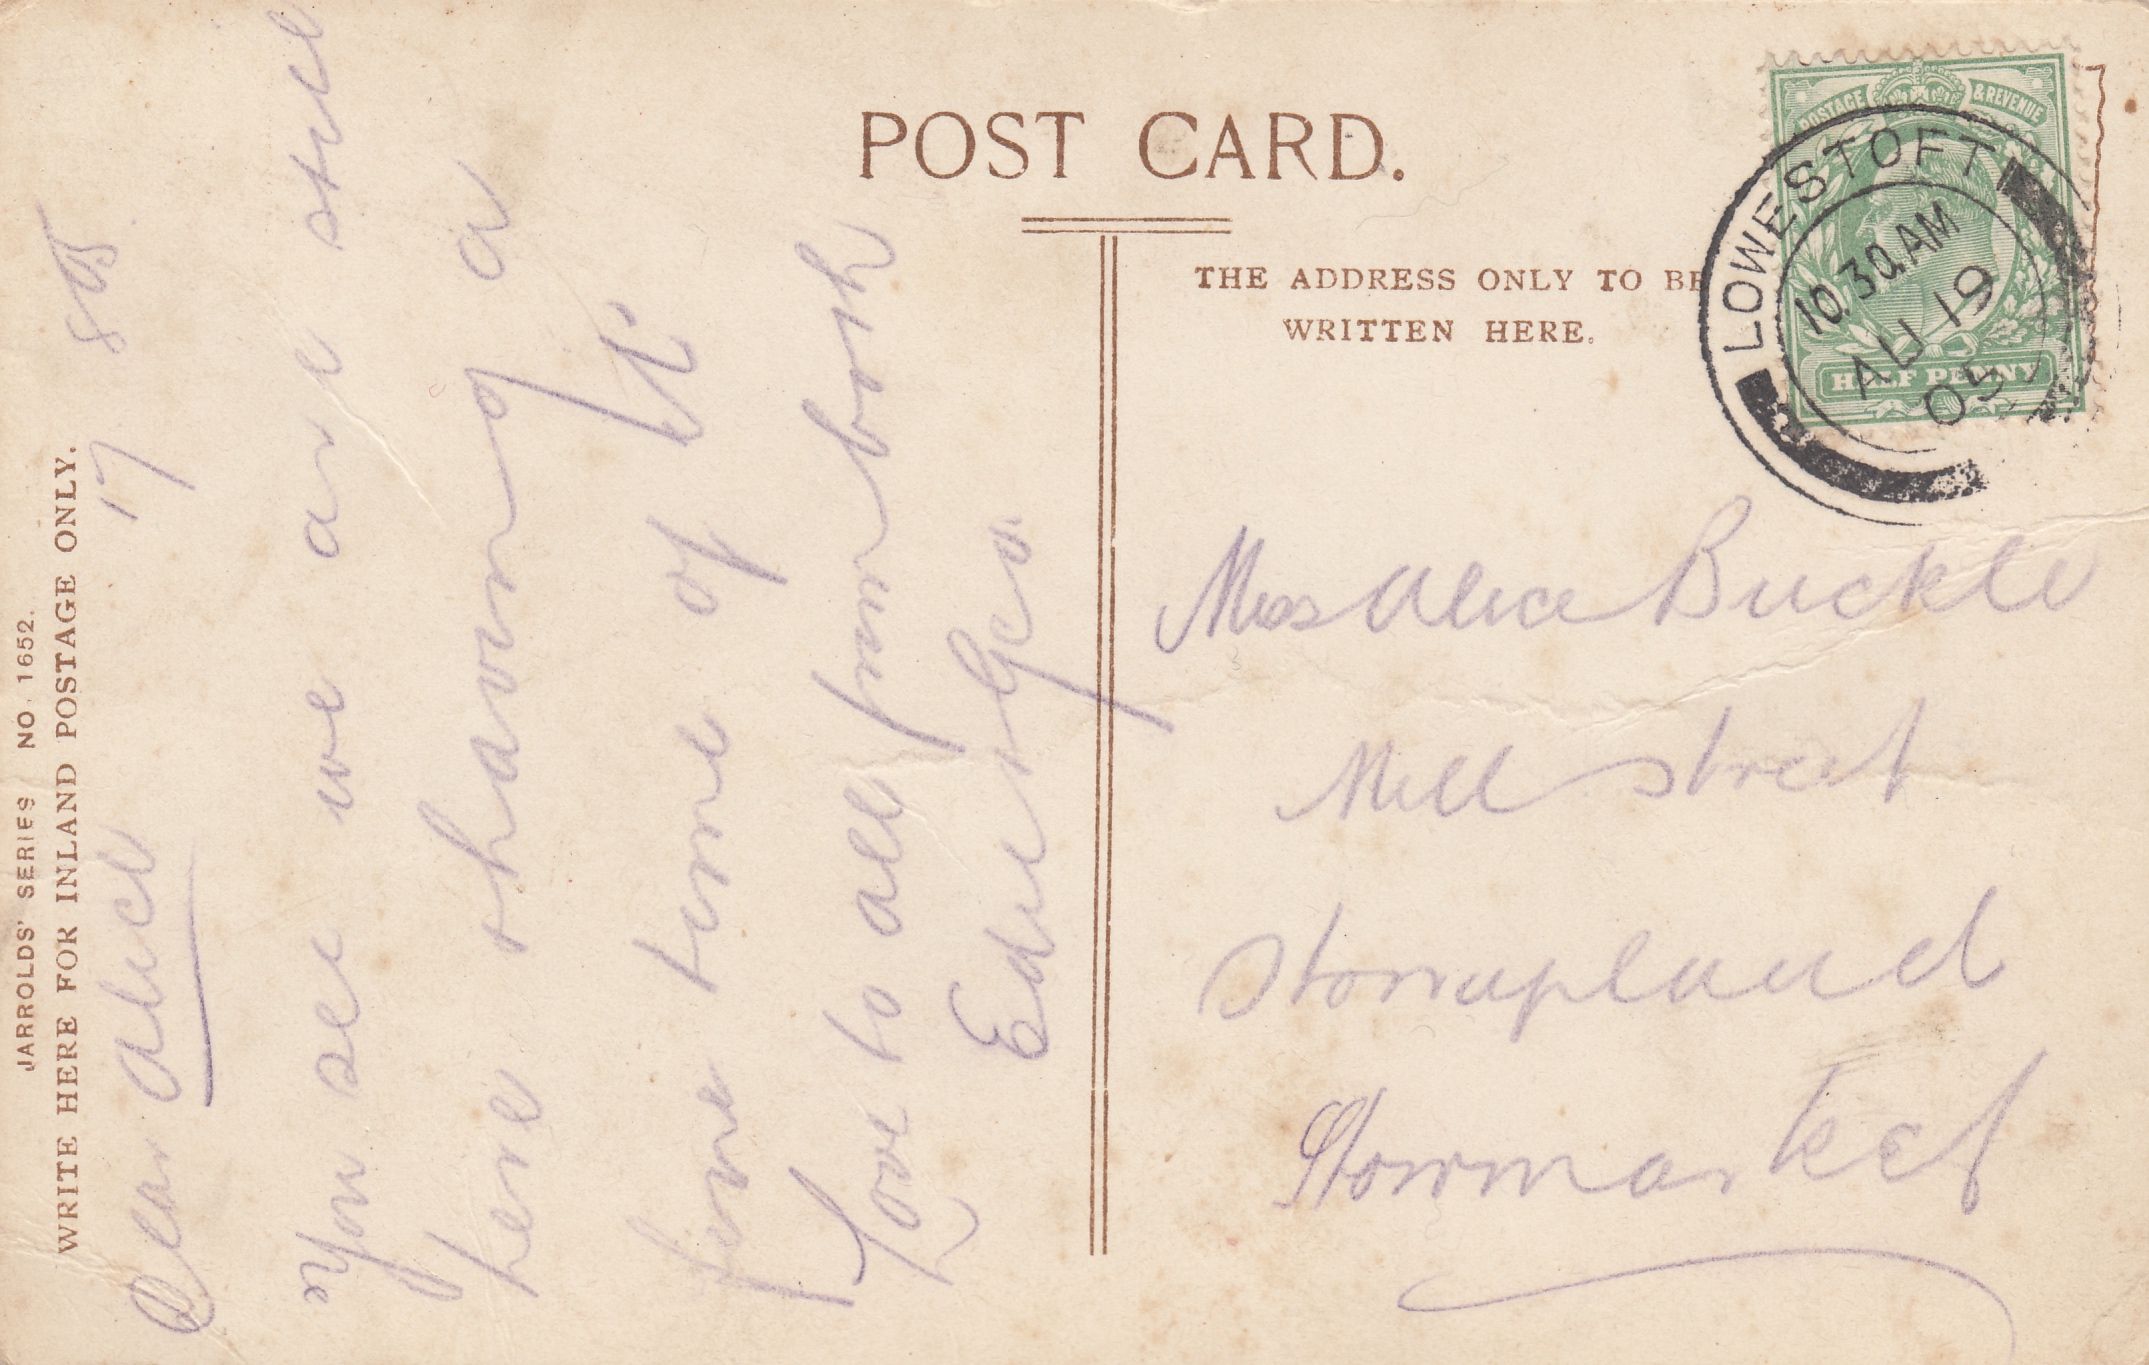 POST CARD.
THE ADDRESS ONLY TO BE
WRITTEN HERE.
POSTAGE & REVENUE
HALF PENNY
LOWESTOFT
10.30 AM
AU 19
05
Miss Alice Buckle
Mill Street
Stowupland
Stowmarket
JARROLDS' SERIES NO. 1652.
WRITE HERE FOR INLAND POSTAGE ONLY.
17 8 05
Dear Alice
You see we are still
here & having a
fine time of it.
Love to all from both
Edie & Geo.